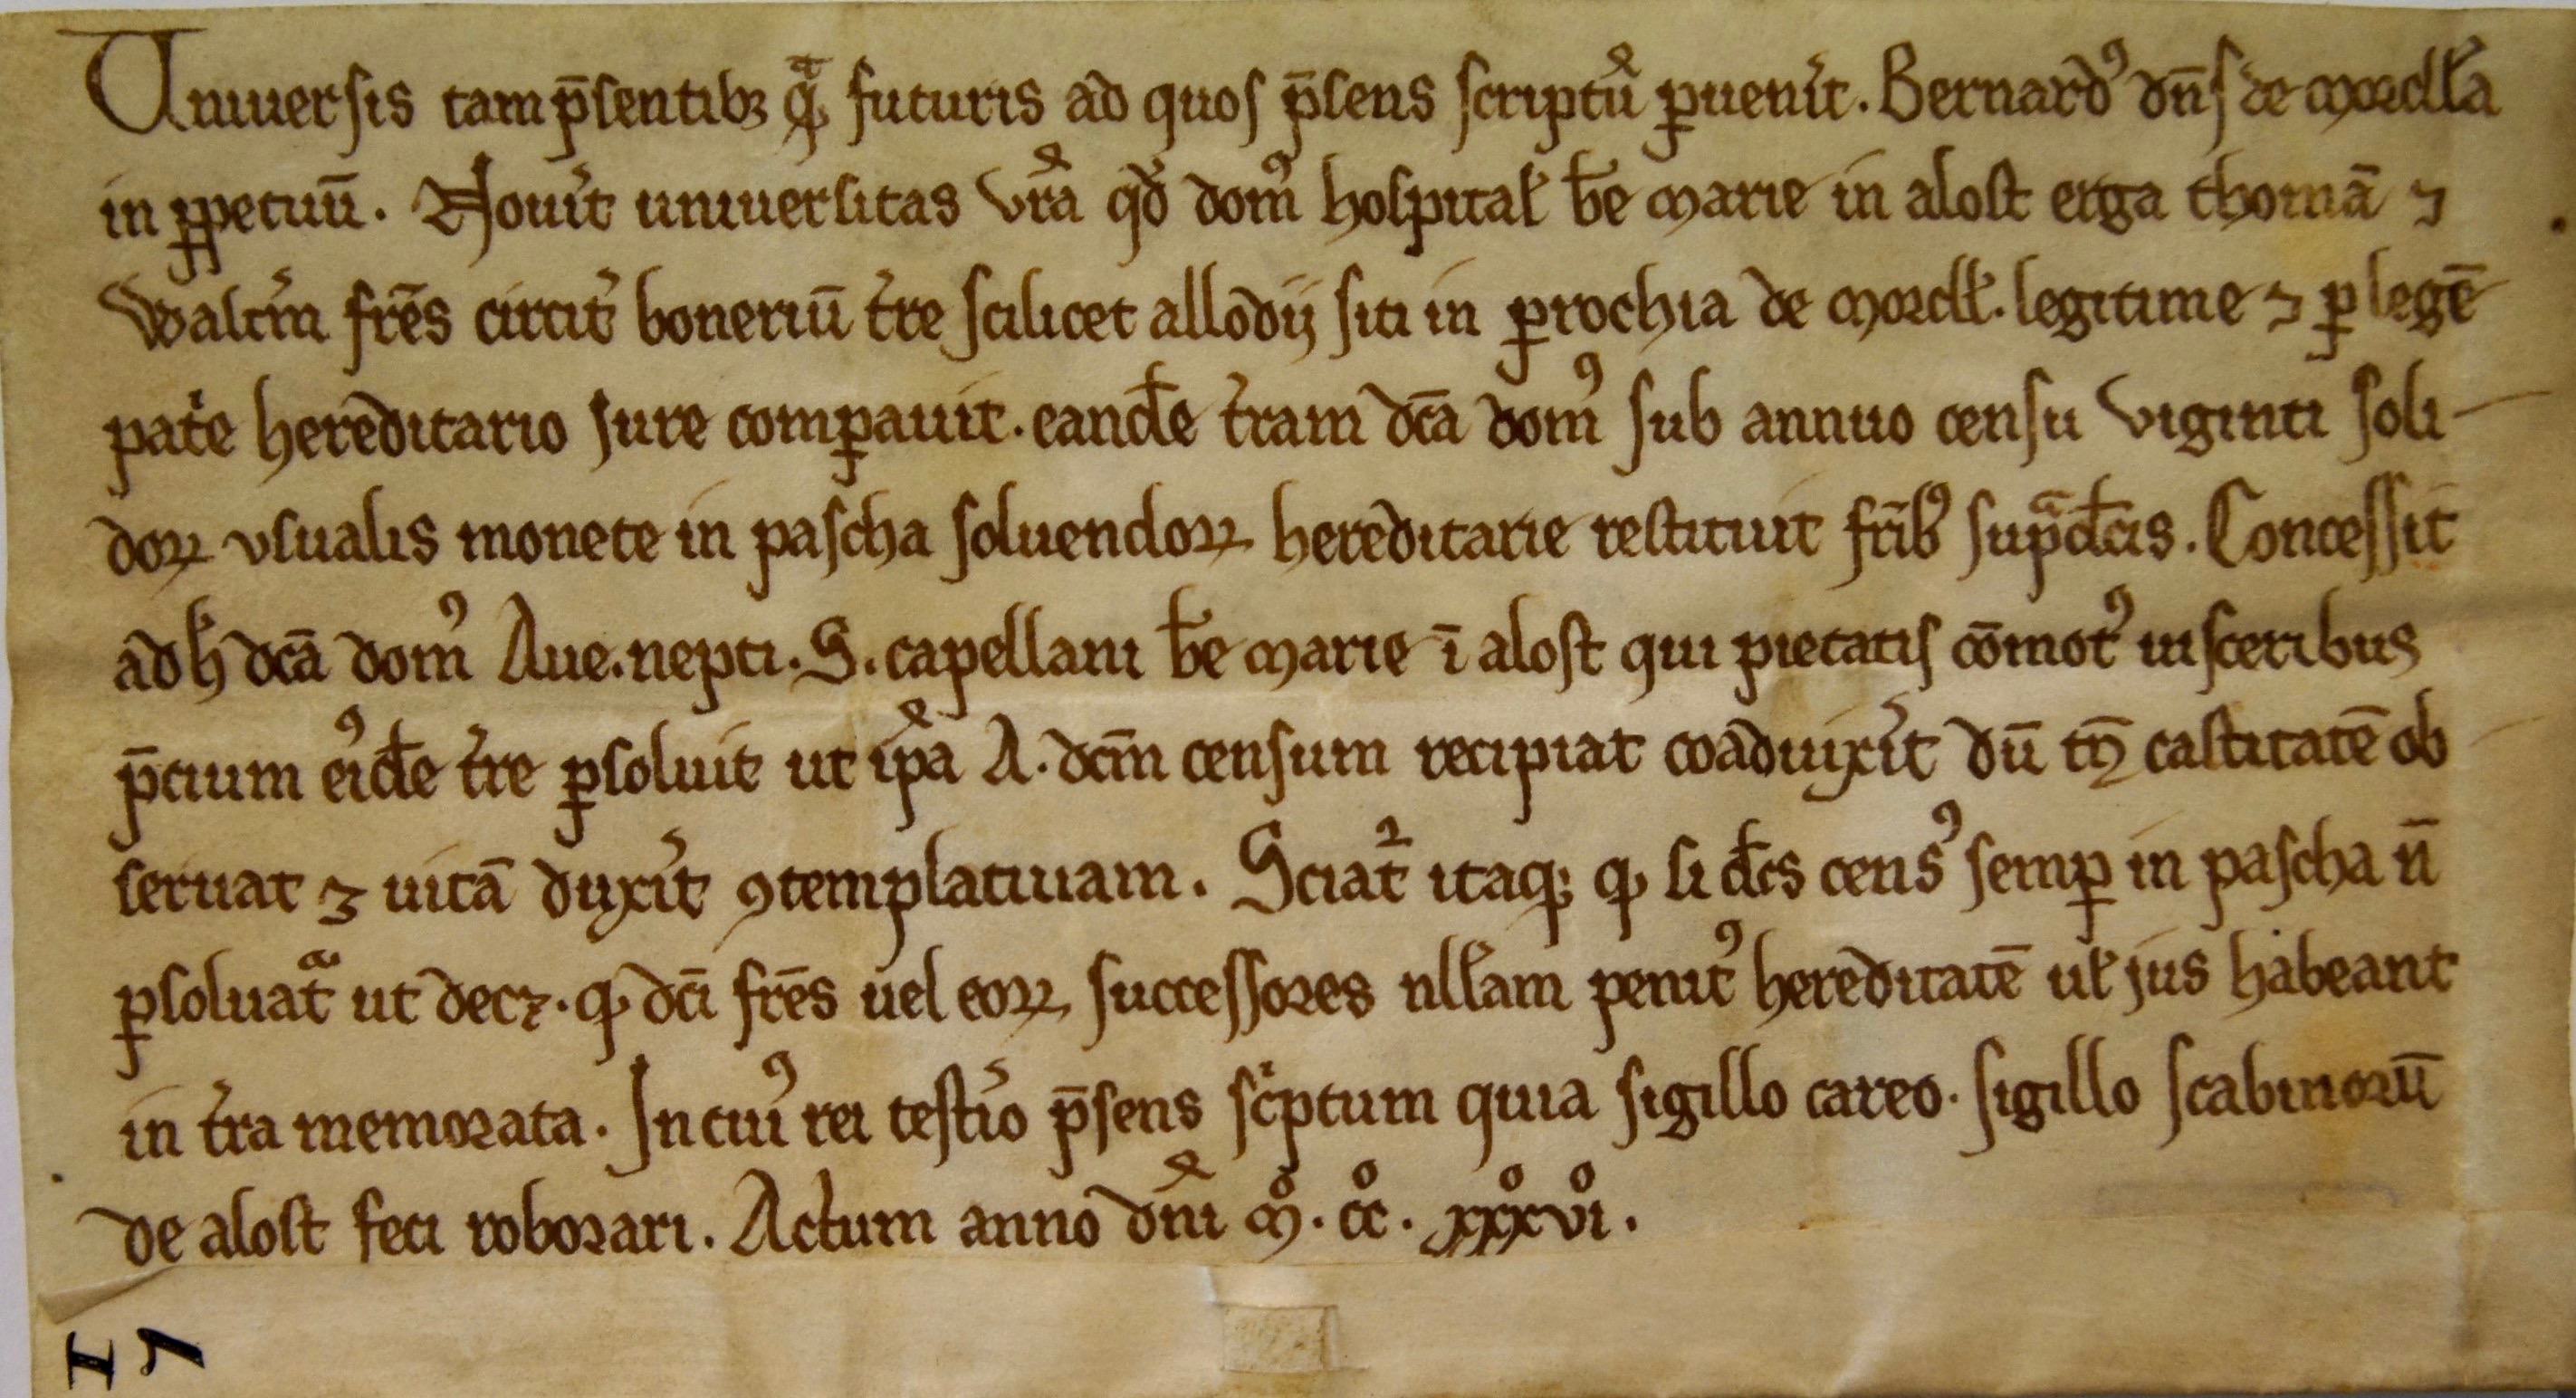 Uniuersis tam p̄sentibꝫ q̃ᵃ futuris ad quos p̄sens scriptũ ꝑuen̓it. Bernardꝰ dn̄s de mordła
in ꝑpetuū. Nou̓it uniuersitas vr̃a qđ domꝰ hospitał bẽ marie in alost erga thomā ⁊
walt̓m frēs circit̓ boneriū t̓re scilicet allodij siti in ꝑrochia de mordł. legitime ⁊ ꝑ legē
pat̓e hereditario jure comꝑauit. eanđe t̓ram dc̄a domꝰ sub annuo censu viginti soli-
doꝝ vsualis monete in pascha soluendoꝝ hereditarie restituit fr̄ibꝰ supᵃđcis. Concessit
adħ dc̄a domꝰ Aue. nepti. S. capellani bẽ marie ī alost qui pietatis cōmotꝰ uisceribus
p̄cium eiꝰđe t̓re ꝑsoluit ut ip̃a A. dc̄m censum recipiat coaduix̓it dū tn̄ castitatē ob
seruat ⁊ uitā dux̓it ꝯtemplatiuam. Sciat᷑ itaqꝫ ꝙ si đcs censꝰ semꝑ in pascha n̄
ꝑsoluatᵃ ut decꝫ. ꝙ dc̄i frēs uel eoꝝ successores ułłam penitꝰ hereditatē uł jus habeant
in t̓ra memorata. In cuiꝰ rei testi̓o p̄sens sc̓ptum quia sigillo careo. sigillo scabinorū
de alost feci roborari. Actum anno dñi mͦ. ccͦ. xxxͦviͦ.
I 7